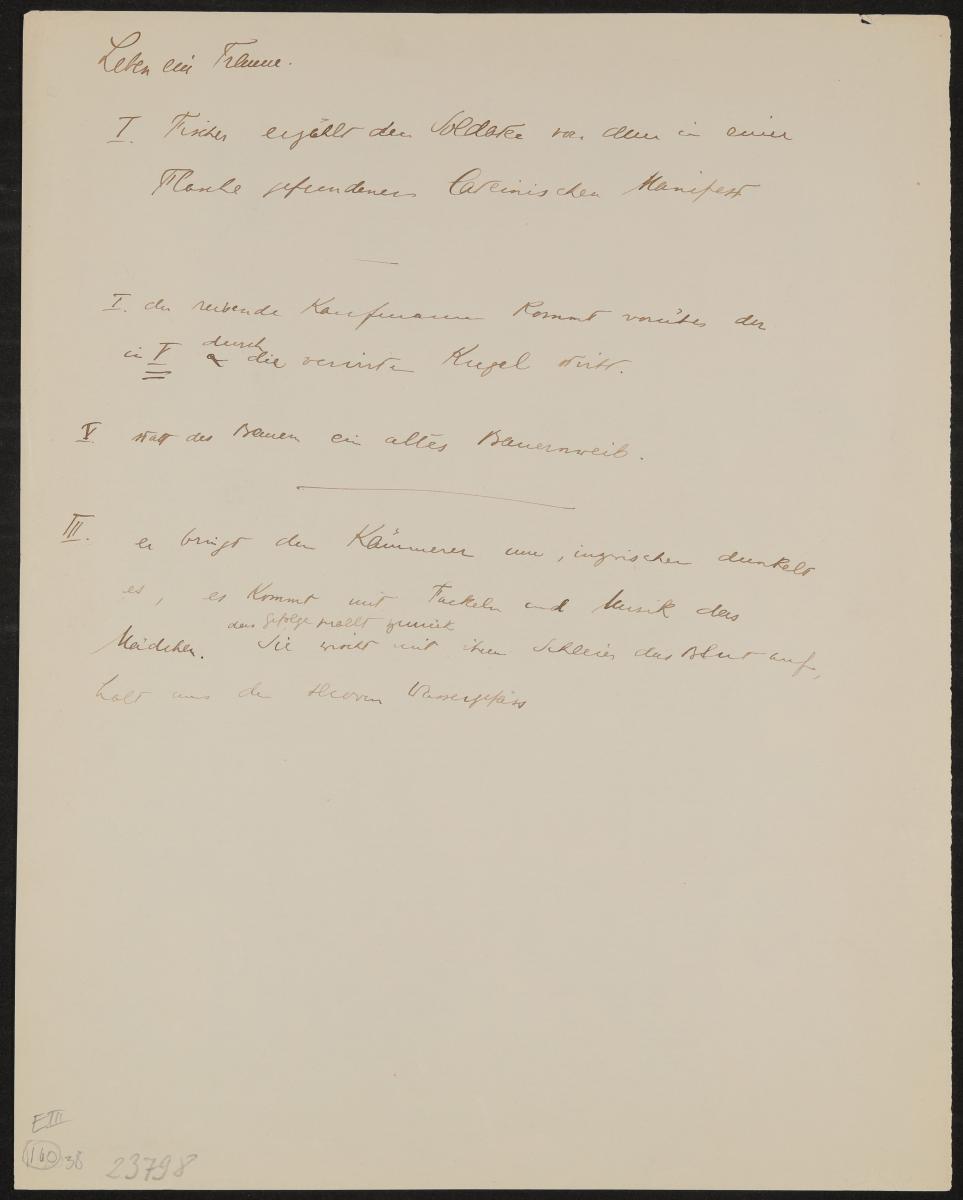 Leben ein Traum.
I. Fischer erzählt den Soldaten von dem in einer
Flasche gefundenen Lateinischen Manifest
I. der reisende Kaufmann kommt vorüber der
in V durch die verirrte Kugel stirbt.
V statt des Bauern ein altes Bauernweib.
III. er bringt den Kämmerer um, inzwischen dunkelt
es, es kommt mit Fackeln und Musik das
das Gefolge prallt zurück
Mädchen. Sie wischt mit ihrem Schleier das Blut auf,
holt aus der Wassergefäss
E III
160 38 23798